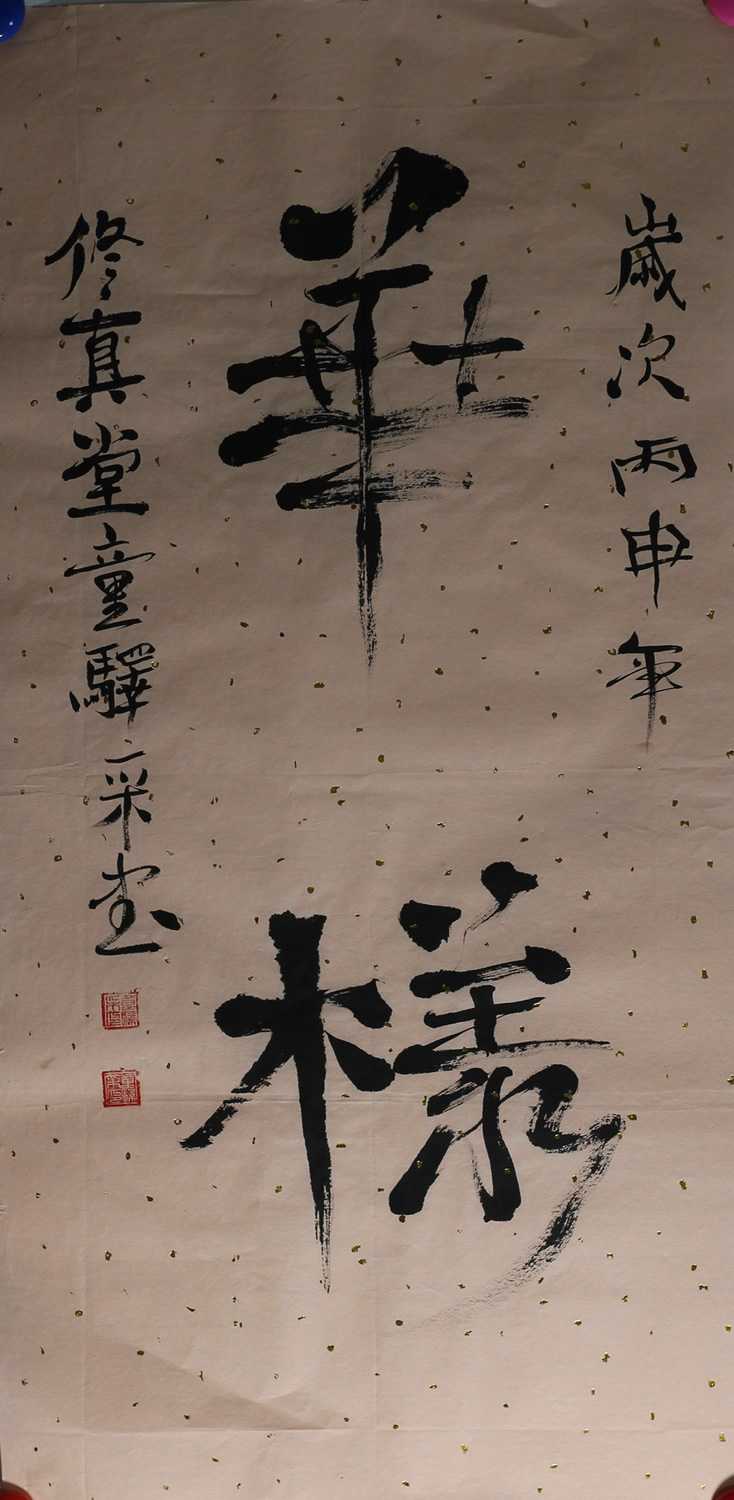 歲次丙申年
華樣
修真堂童驛采書